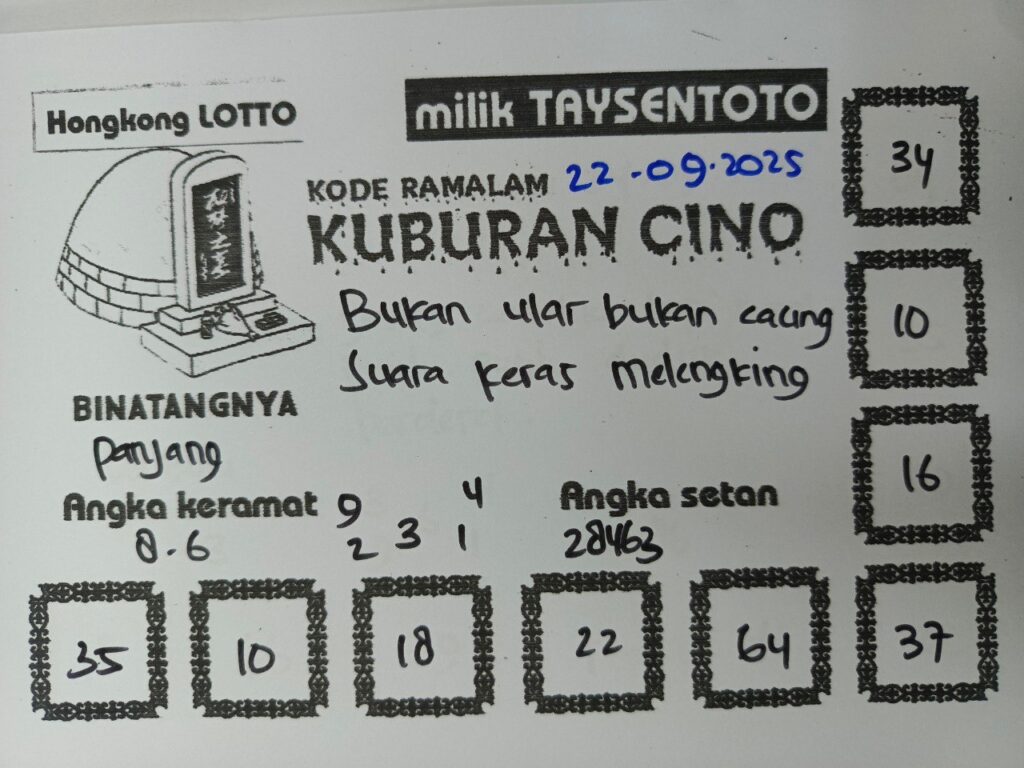 Hongkong LOTTO
milik TAYSENTOTO
KODE RAMALAM 22-09-2025
KUBURAN CINO
Bukan ular bukan cacing
Suara keras melengking
BINATANGNYA
Panjang
Angka keramat
8.6
9 4
2 3 1
Angka setan
28463
34
10
16
35 10 18 22 64 37